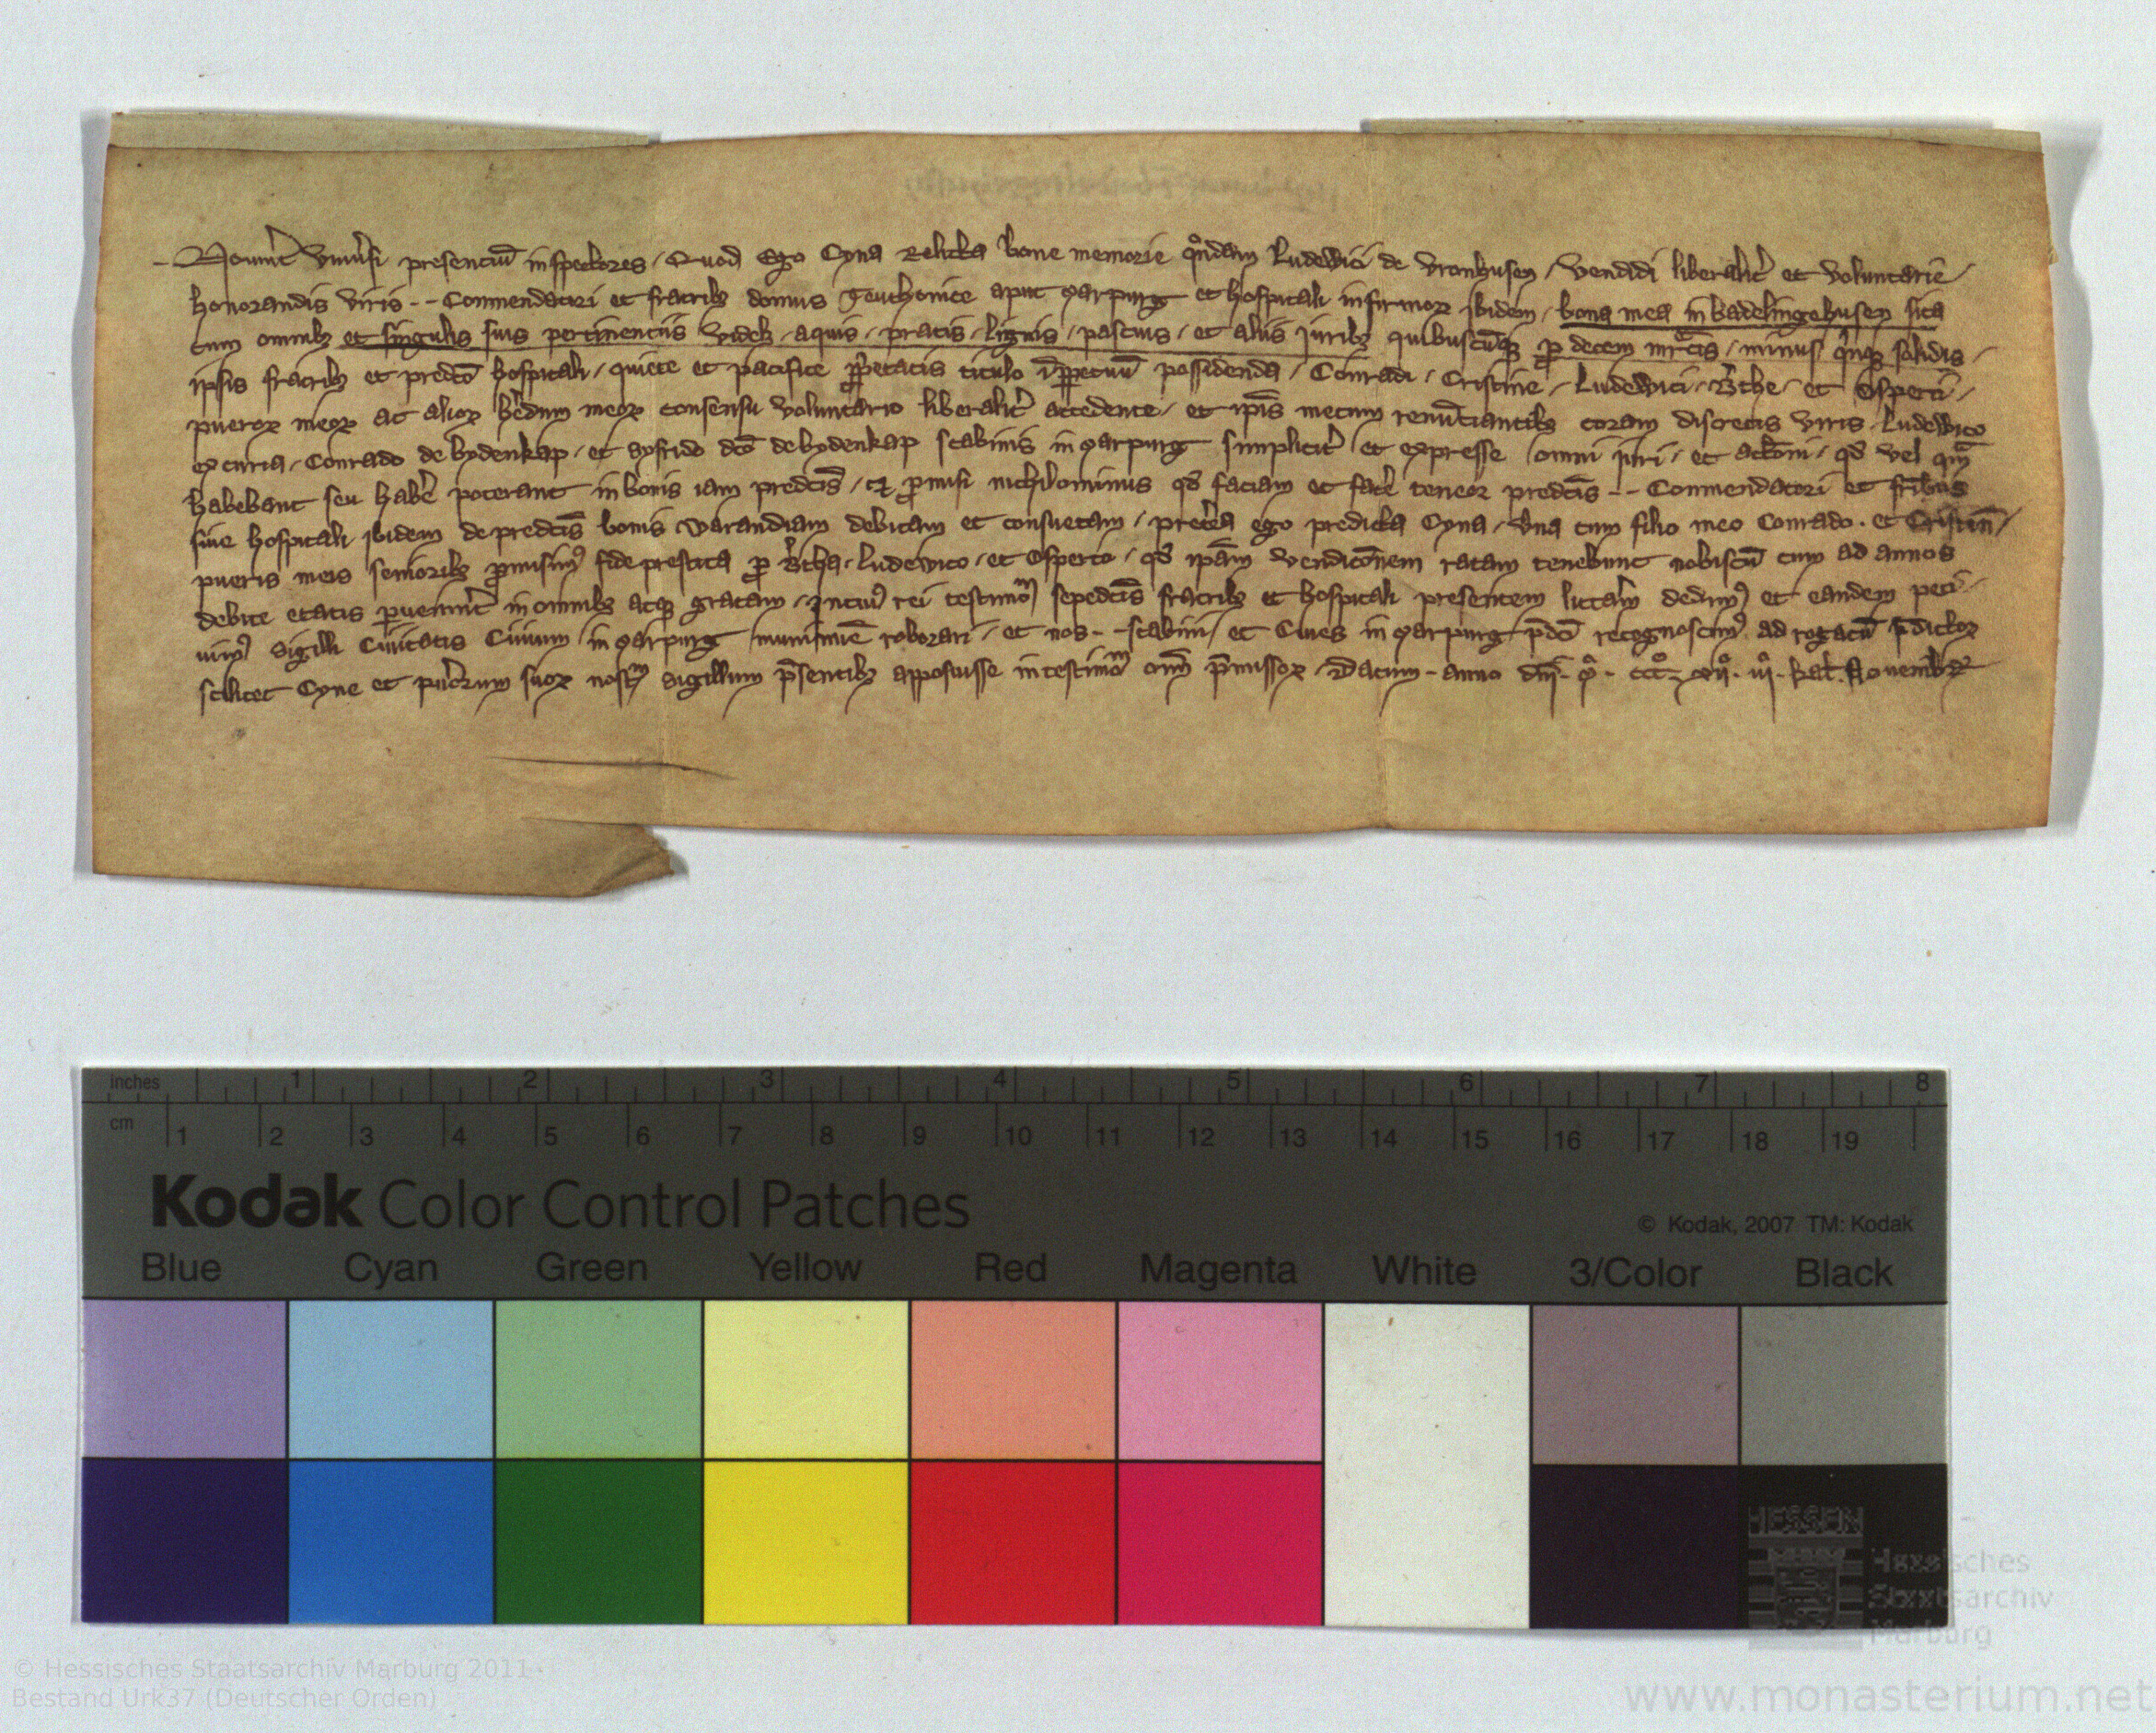 Nouerīt vniu'si presentiū inspectores / Quod Ego Cyna Relicta bone memorie qͦndam Ludewici de vronhusen / vendidi liberalit' et voluntarie /
honorandis viris - - Conmendatori et fratribꝫ domus Teuthonice aput marpurg et hospitali infirmoꝝ ibidem / bona mea in badelingehusen sita
cum omnibꝫ et singulis suis pertinentiis videlꝫ · aquis · pratis · lignis / pascuis / et aliis juribꝫ quibuscūqꝫ ꝓ decem mrͣcis / minus qͥnqꝫ solidis /
ipsis fratribꝫ et predcō hospitali / quiete et pacifice ꝓp'etatis titulo īꝑpetuū possidenda / Conradi / Cristine / Ludewici · B'the / et Osperti /
pueroꝝ meoꝝ ac alioꝝ h'edum meoꝝ consensu voluntario liberalit' accedente / et ip̄is mecum renūtiantibꝫ coram discretis viris Ludewico
ex curia · Conrado de bydenkap / et Syfrido dc̄o de bydenkap scabinis in marpurg simplicit' et expresse omni juri / et actōni / qd' vel qm̄
habebant seu hab'e poterant in bonis iam predcīs / ꝓmisi nichilominus qd' faciam et fac'e teneor predcīs - - Conmendatori et fr̄ibus
siue hospitali ibidem de predcīs bonis varandiam debitam et consuetam / pret'ea ego predicta Cyna / vna cum filio meo Conrado · et Cristin̄ /
pueris meis senioribꝫ ꝓmisimꝰ fide prestita ꝓ B'tha · Ludewico · et Osperto / qd' ip̄am vendicōnem ratam tenebunt nobiscū cum ad annos
debite etatis ꝑuenīnt in omnibꝫ atqꝫ gratam · In cuiꝰ rei testimoͫ sepedcīs fratribꝫ et hospitali presentem litt'am dedimꝰ et eandem peti-
uimꝰ Sigilli Ciuitatis Ciuium in marpurg munimīe roborari / et nos - - scabini / et Ciues in marpurg p̄dc̄i recognoscimꝰ ad rogatū p̄dictoꝝ
scilicet Cyne et pu'orum suoꝝ nostͫ Sigillum p̄sentibꝫ apposuisse in testimoͫ om̄ p̄missoꝝ · Datum · anno dn̄i · mͦ · cccͦ · xijͦ · iijͦ · kal · Nouembr
inches 1 2 3 4 5 6 7 8
cm 1 2 3 4 5 6 7 8 9 10 11 12 13 14 15 16 17 18 19
Kodak Color Control Patches
© Kodak, 2007 TM: Kodak
Blue Cyan Green Yellow Red Magenta White 3/Color Black
HESSEN
Hessisches
Staatsarchiv
Marburg
© Hessisches Staatsarchiv Marburg 2011
Bestand Urk37 (Deutscher Orden)
www.monasterium.net